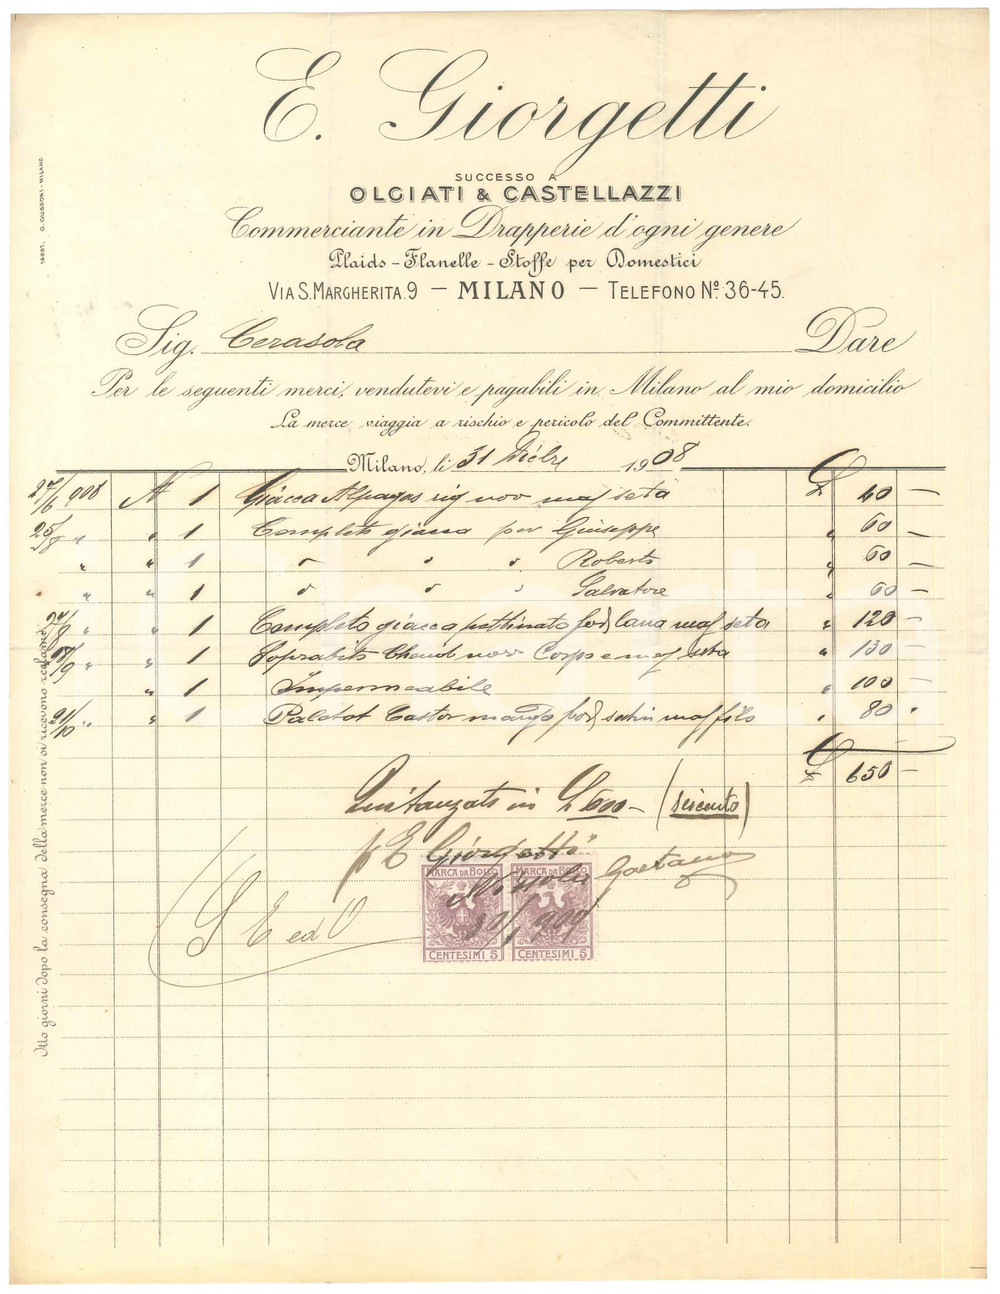 E. Giorgetti
SUCCESSO A
OLGIATI & CASTELLAZZI
Commerciante in Drapperie d'ogni genere
Plaids - Flanelle - Stoffe per Domestici
VIA S. MARGHERITA. 9 — MILANO — TELEFONO Nº 36-45.
Sig. Cerasola Dare
Per le seguenti merci, vendutevi e pagabili in Milano al mio domicilio
La merce viaggia a rischio e pericolo del Committente.
Milano, li 31 Dicbre 1908
27/6 908 N 1 Giacca Alpagas rig nov mas seta £ 40 —
25/8 " " 1 Completo giacca per Giuseppe " 60 —
" " 1 " " " Roberto " 60 —
" " 1 " " " Salvatore " 60 —
" " 1 Completo giacca pettinato fod lana mas seta " 120 —
" " 1 Soprabito Cheviot nov Corpo e mas seta " 130 —
" 1 Impermeabile " 100 —
21/10 " " 1 Paletot Castor fod satin mas filo " 80 "
£ 650 —
Quitanzato in £ 600 — (seicento)
p E Giorgetti
Gaetano
30/1 909
S E ed O
MARCA DA BOLLO MARCA DA BOLLO
CENTESIMI 5 CENTESIMI 5
16661. G. GUSSONI - MILANO
Otto giorni dopo la consegna della merce non si ricevono reclami